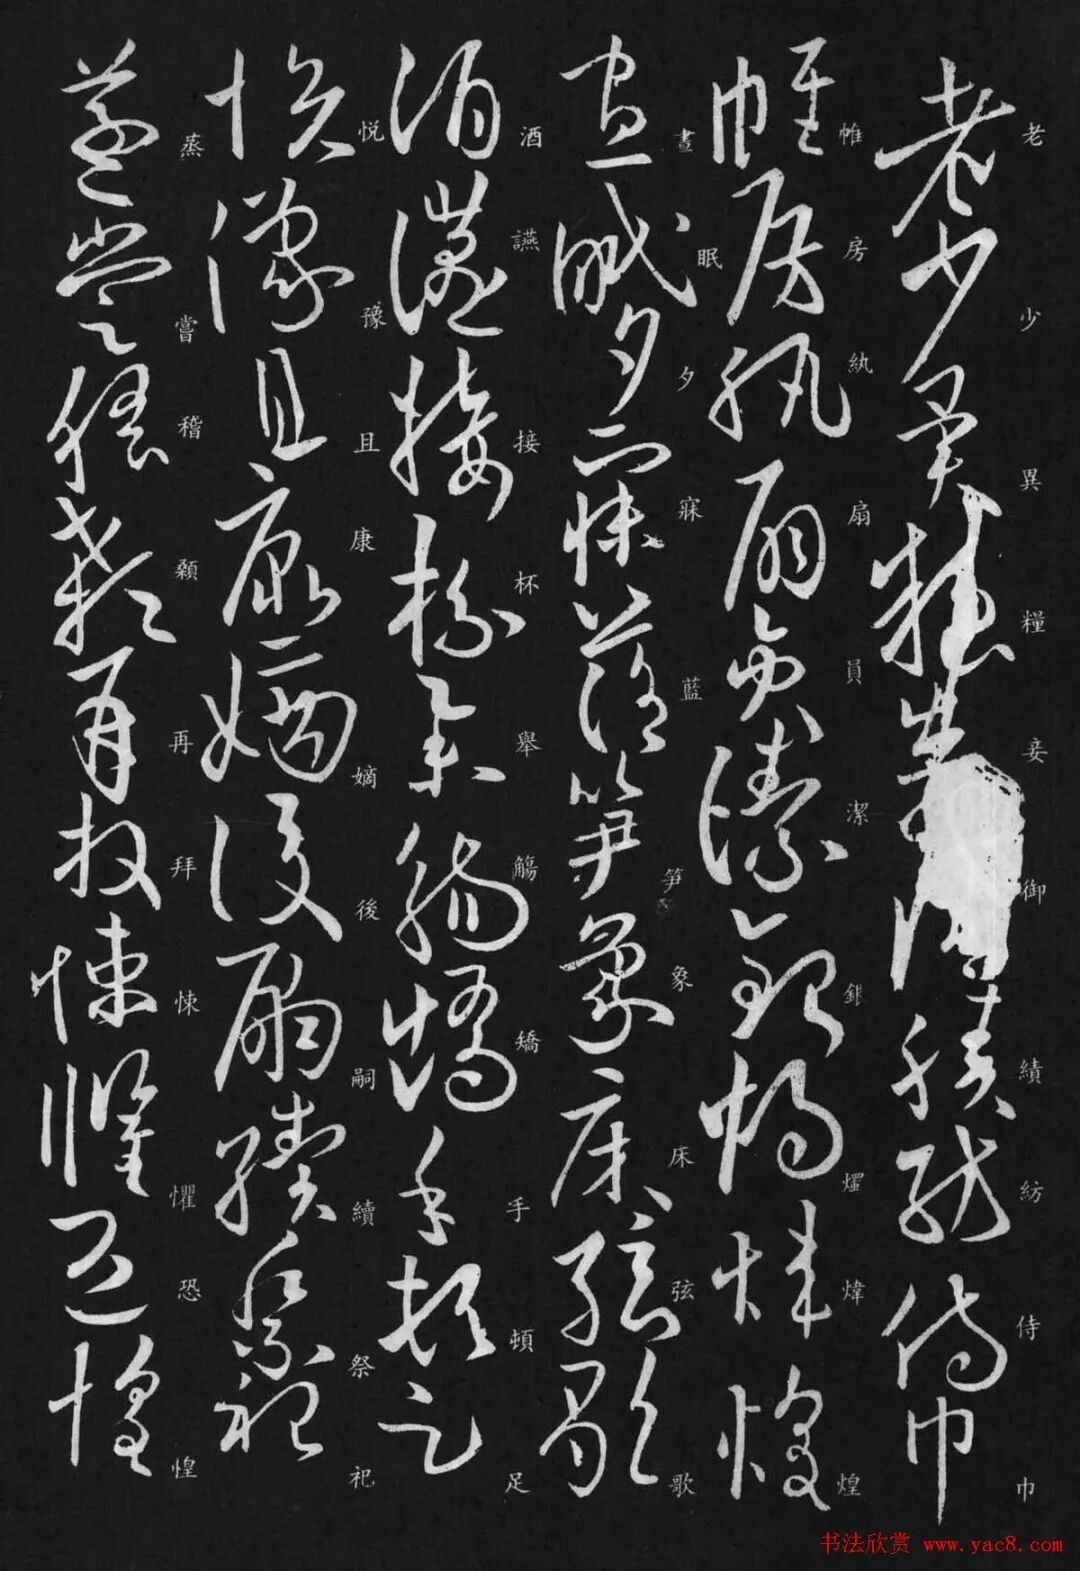 老少異糧妾御績紡侍巾
帷房紈扇員潔銀燭煒煌
晝眠夕寐藍笋象床弦歌
酒讌接杯舉觴矯手頓足
悅豫且康嫡後嗣續祭祀
蒸嘗稽顙再拜悚懼恐惶
书法欣赏 www.yac8.com